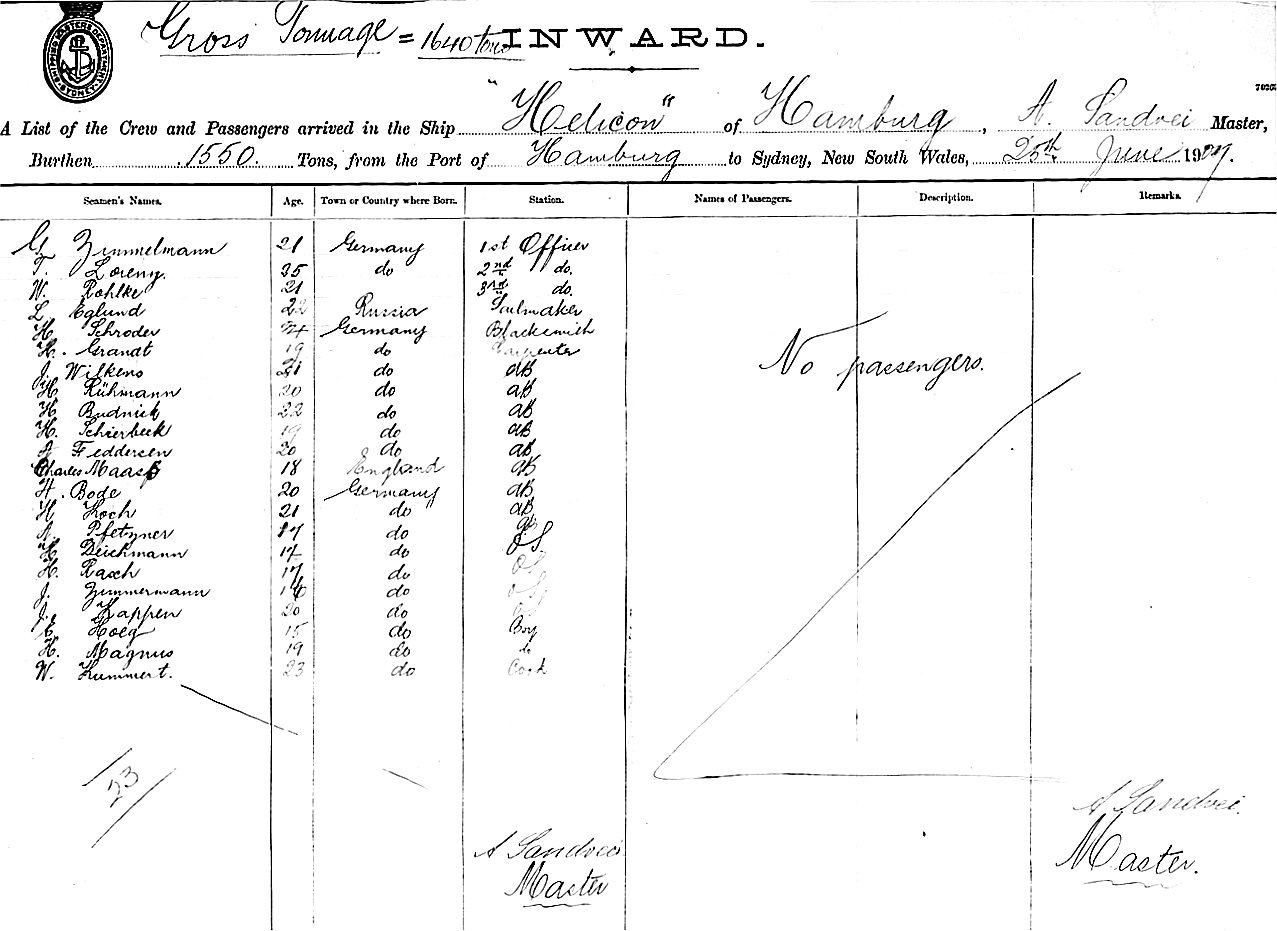 Gross Tonnage = 1640 tons INWARD.
SHIPPING MASTERS DEPARTMENT SYDNEY
A List of the Crew and Passengers arrived in the Ship "Helicon" of Hamburg, A. Sandvei Master,
Burthen 1550. Tons, from the Port of Hamburg to Sydney, New South Wales, 25th June 1909.
Seamen's Names. Age. Town or Country where Born. Station. Names of Passengers. Description. Remarks.
G Zimmelmann 21 Germany 1st Officer
T. Loreny. 25 do 2nd do.
W. Rohlke 21 3rd do.
L. Eglund 22 Russia Sailmaker
H Schroder 24 Germany Blacksmith
H. Grandt 19 do Carpenter
J. Wilkens 21 do AB
H Rühmann 20 do AB
H Budnick 22 do AB
H. Schierbeck 19 do AB
A Feddersen 20 do AB
Charles Maass 18 England AB
H. Bode 20 Germany AB
H Koch 21 do AB
A. Pfetzner 17 do
H Deichmann 17 do O.S.
H. Rasch 17 do OS
J. Zimmermann do OS
J. Kappen 20 do
E Hoeg 15 do Boy
H. Magnus 19 do do
W. Kummert. 23 do Cook
No passengers.
23
A Sandvei
Master
A Sandvei.
Master.